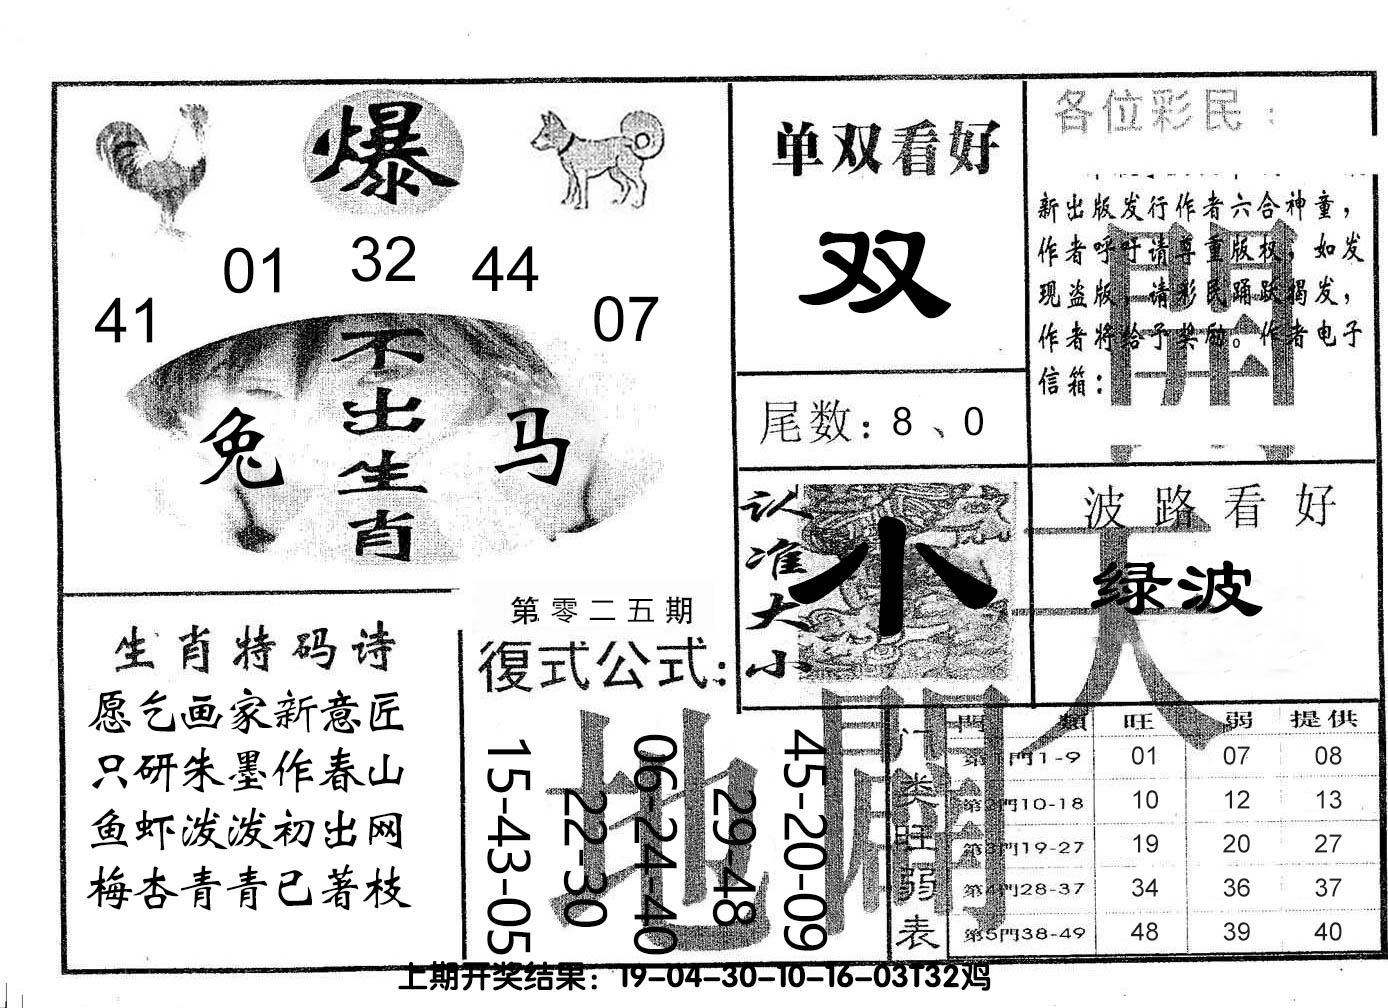 爆
01 32 44
41 07
不出生肖
兔 马
单双看好
双
尾数：8、0
各位彩民：
新出版发行作者六合神童，
作者呼吁请尊重版权，如发
现盗版，请彩民踊跃揭发，
作者将给予奖励。作者电子
信箱：
認准大小
小
波路看好
绿波
開
天
地
闢
生肖特码诗
愿乞画家新意匠
只研朱墨作春山
鱼虾泼泼初出网
梅杏青青已著枝
第零二五期
復式公式：
15-43-05
22-30
06-24-40
29-48
45-20-09
门类旺弱表
門 類 旺 弱 提供
第1門1-9 01 07 08
第2門10-18 10 12 13
第3門19-27 19 20 27
第4門28-37 34 36 37
第5門38-49 48 39 40
上期开奖结果：19-04-30-10-16-03T32鸡